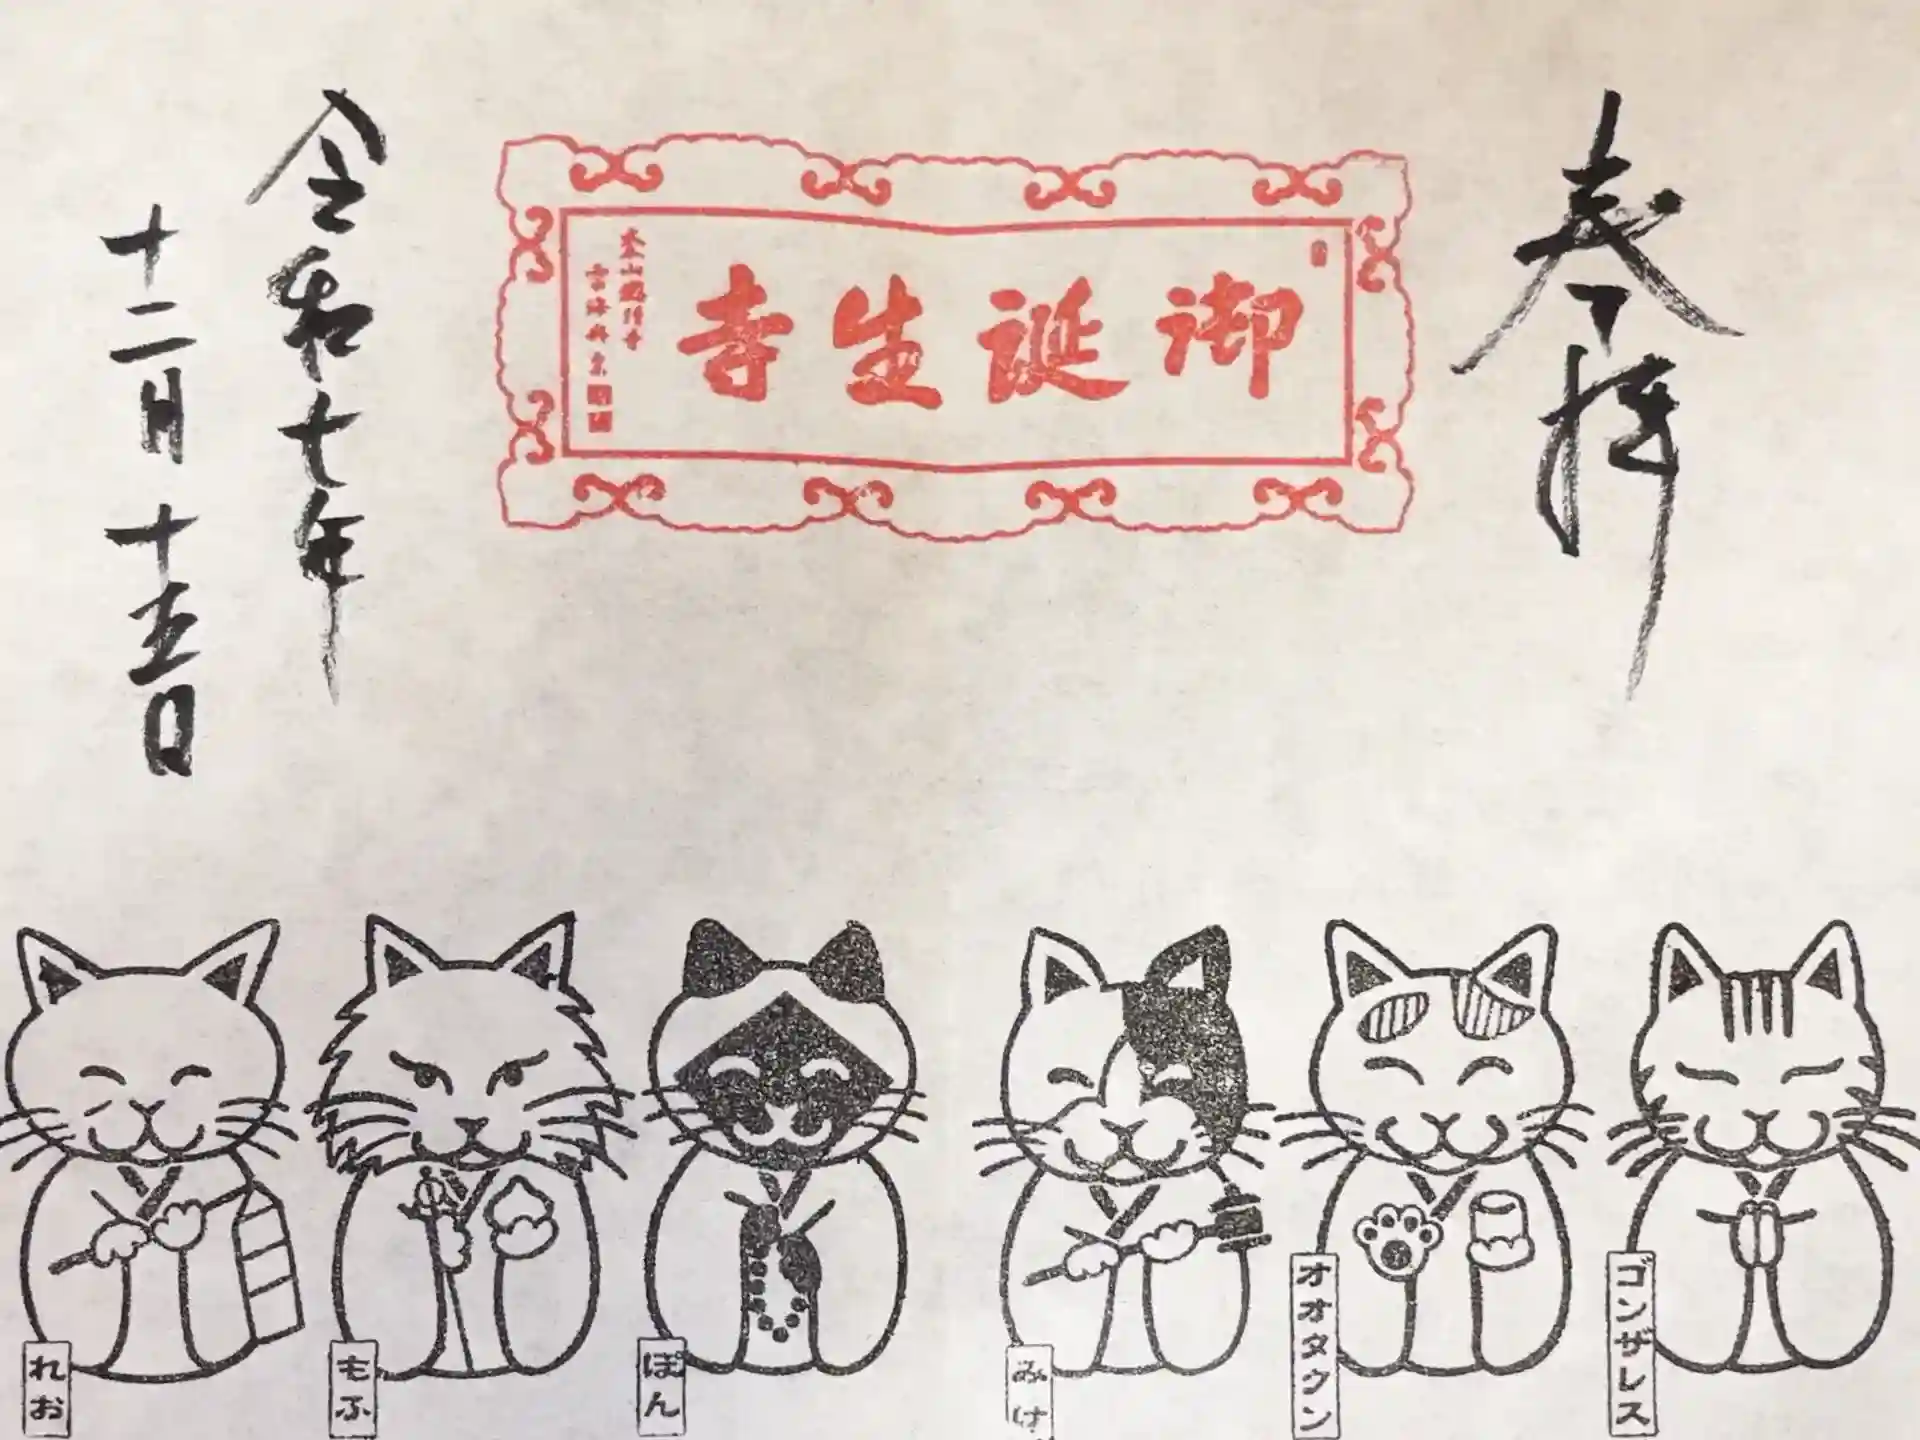 奉拝
御誕生寺
令和七年
十二月十五日
れお
もふ
ぽん
みけ
オオタウン
ゴンザレス